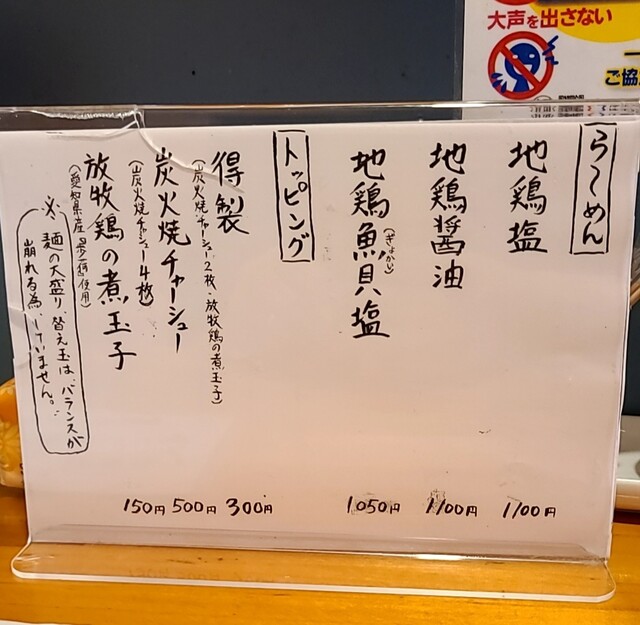 大声を出さない
ご協
らーめん
地鶏塩
1100円
地鶏醤油
1100円
地鶏魚貝塩
(ぎょかい)
1050円
トッピング
得製
(炭火焼チャーシュー2枚、放牧鶏の煮玉子)
300円
炭火焼チャーシュー
(炭火焼チャーシュー4枚)
500円
放牧鶏の煮玉子
(愛知県産
使用)
150円
※麺の大盛り、替え玉は、バランスが
崩れる為、していません。